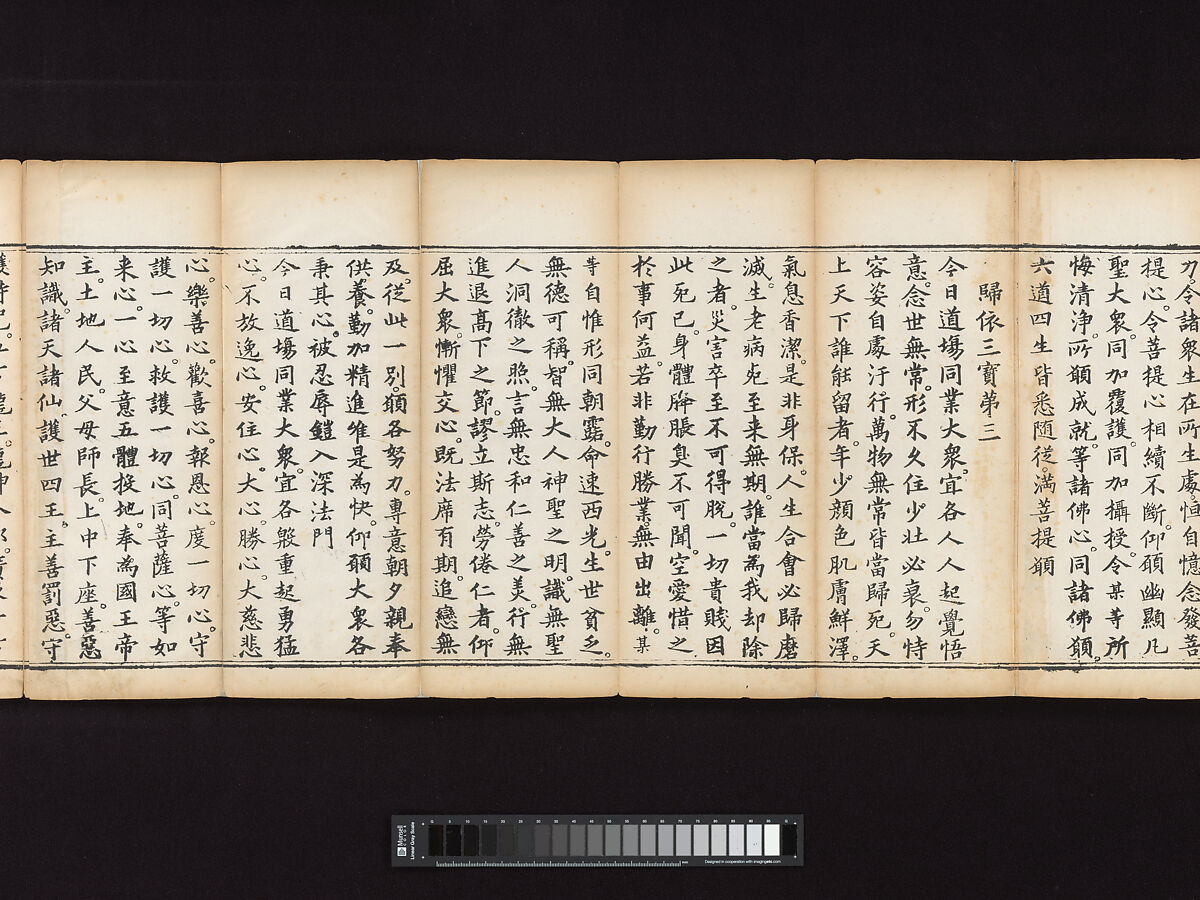 力令諸衆生在所生處恒自憶念發菩
提心。令菩提心相續不斷。仰願幽顯凡
聖大衆。同加覆護。同加攝授。令某等所
悔清淨。所願成就。等諸佛心。同諸佛願。
六道四生皆悉隨從。滿菩提願
歸依三寶第三
今日道塲同業大衆。宜各人人起覺悟
意。念世無常。形不久住。少壯必衰。勿恃
容姿自處汙行。萬物無常皆當歸死。天
上天下誰能留者。年少顏色肌膚鮮澤。
氣息香潔。是非身保。人生合會必歸磨
滅。生老病死至來無期。誰當爲我却除
之者。災害卒至不可得脫。一切貴賤因
此死已。身體胮脹臭不可聞。空愛惜之
於事何益。若非勤行勝業。無由出離。某
等自惟形同朝露。命速西光。生世貧乏。
無德可稱。智無大人神聖之明。識無聖
人洞徹之照。言無忠和仁善之美。行無
進退高下之節。謬立斯志。勞倦仁者。仰
屈大衆。慚懼交心。既法席有期。追戀無
及。從此一別。願各努力。專意朝夕親奉
供養。勤加精進唯是爲快。仰願大衆各
秉其心。被忍辱鎧入深法門
今日道塲同業大衆。宜各慇重起勇猛
心。不放逸心。安住心。大心勝心大慈悲
心。樂善心。歡喜心。報恩心。度一切心。守
護一切心。救護一切心同菩薩心。等如
来心。一心至意五體投地。奉爲國王帝
主。土地人民。父母師長。上中下座。善惡
知識。諸天諸仙。護世四王。主善罰惡。守